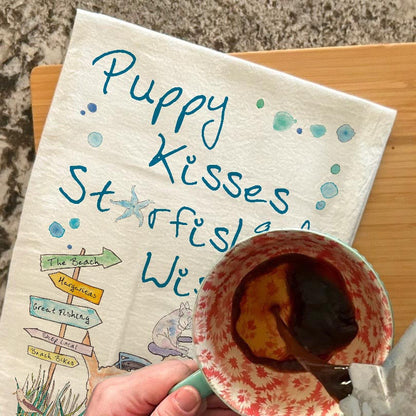 Puppy
Kisses
Starfish
Wis
The Beach
Margaritas
Great Fishing
Shop Local
Beach Bikes